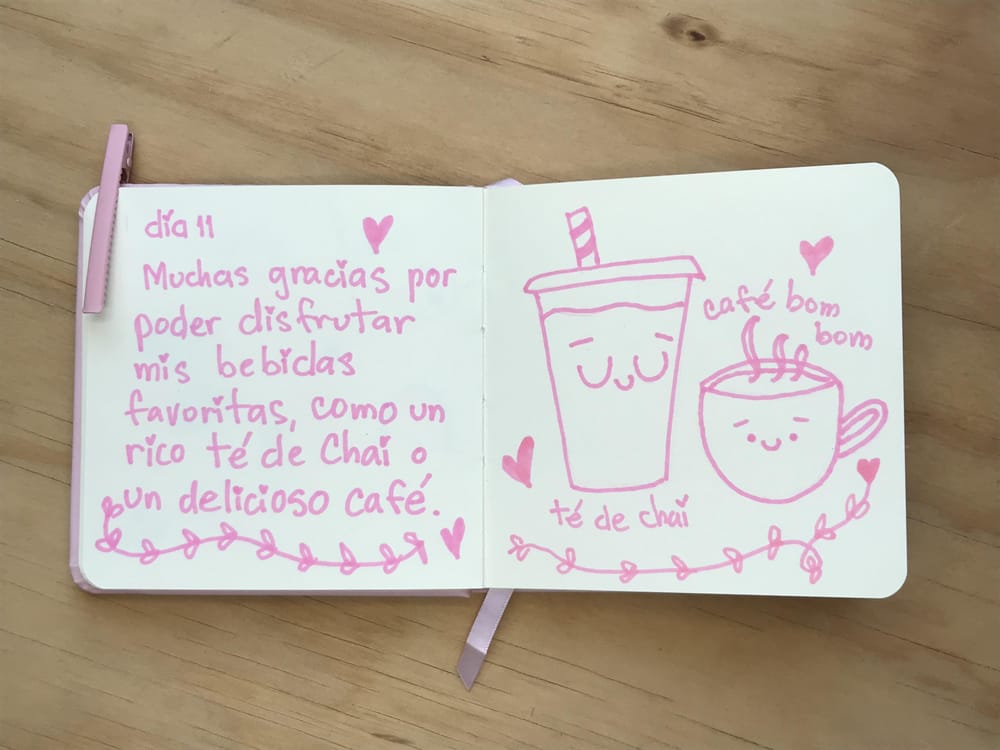 día 11
Muchas gracias por
poder disfrutar
mis bebidas
favoritas, como un
rico té de Chai o
un delicioso café.
café bom
bom
té de chai